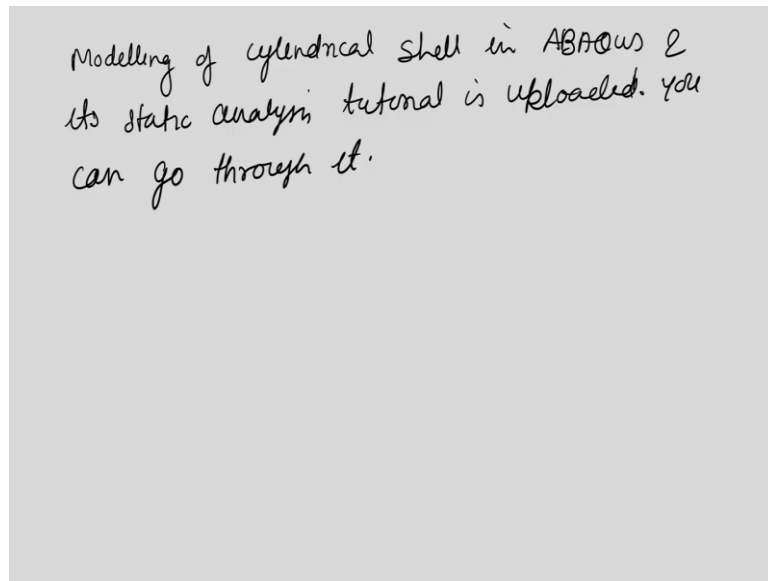 Modelling of cylindrical shell in ABAQUS &
its static analysis tutorial is uploaded. You
can go through it.